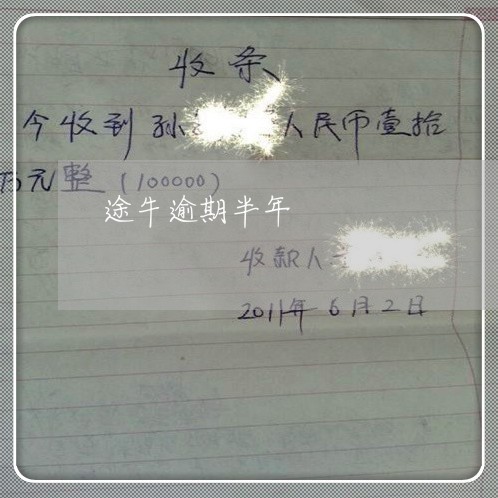 收条
今收到孙 人民币壹拾
万元整(100000)
途牛逾期半年
收款人
2011年6月2日